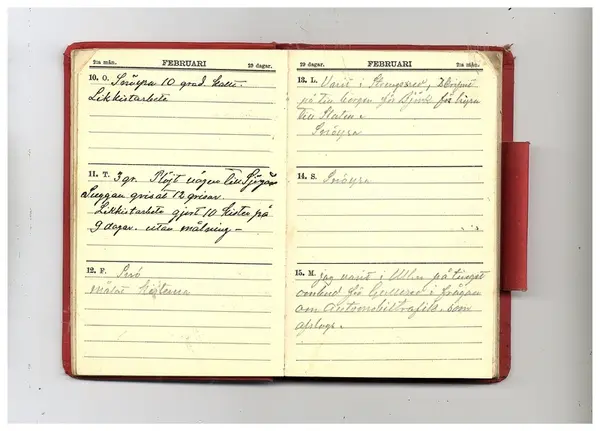 2:a mån. FEBRUARI 29 dagar.
10. O. Snöyra 10 grad. kallt.
Likkistarbete
11. T. 3 gr. Plöjt vägen till
Suggan grisat 12 grisar.
Likkistarbete gjort 10 kistor på
9 dagar. utan målning –
12. F. Snö
målat kistorna
29 dagar. FEBRUARI 2:a mån.
13. L. Varit i
på för Björk för hyra
till Staten.
Snöyra
14. S. Snöyra
15. M. jag varit i på tinget
ombud för i frågan
om Automobiltrafik. som
afslogs.